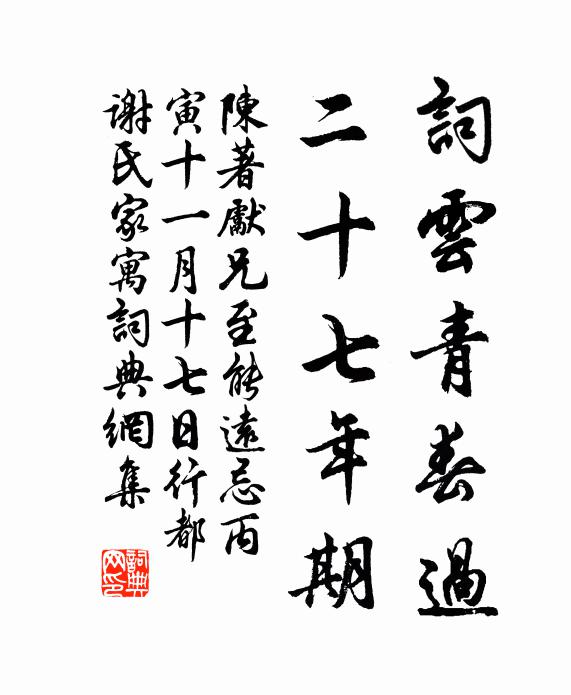 詞雲青春過
二十七年期
陳著獻兄至能遠忌丙
寅十一月十七日行都
謝氏家寓詞典網集
詞典网印